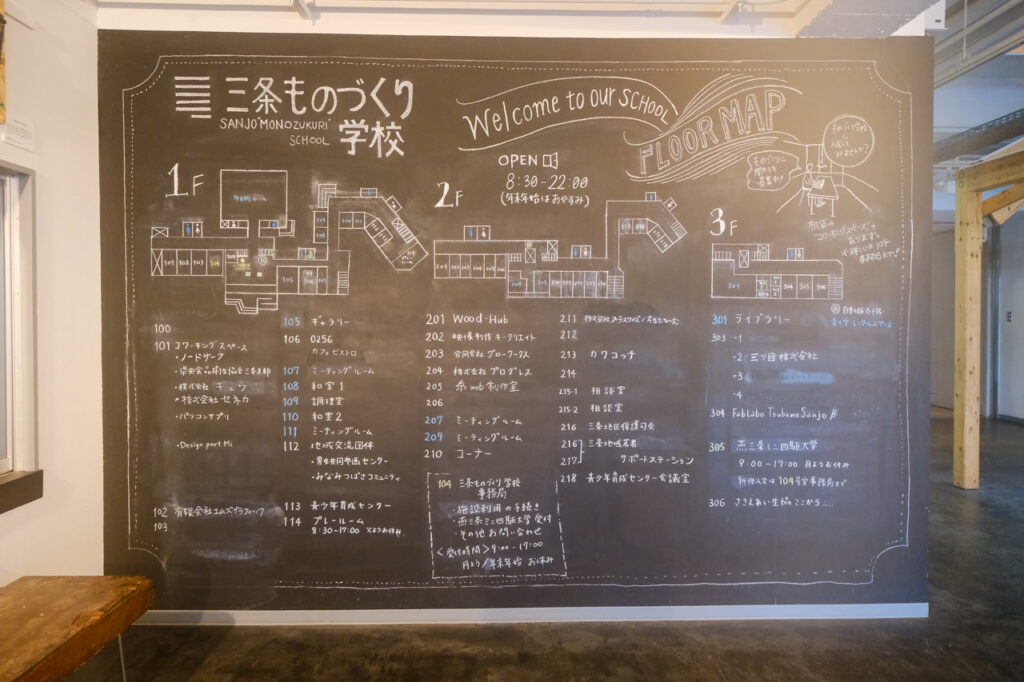 三条ものづくり
SANJO "MONOZUKURI"
SCHOOL
学校
Welcome to our SCHOOL
FLOOR MAP
OPEN
8:30-22:00
(年末年始はおやすみ)
ものづくり学校
に
入居して
みませんか?
ものづくりに
募集中!
1F
2F
3F
100
101 コワーキングスペース
・ノードサーフ
・県央食品衛生協会三条支部
・株式会社 キュウ
・株式会社 セネカ
・パソコンサプリ
・Design port Mi
102 有限会社エムズグラフィック
103
105 ギャラリー
106 0256
カフェビストロ
107 ミーティングルーム
108 和室1
109 調理室
110 和室2
111 ミーティングルーム
112 地域交流団体
・男女共同参画センター
・みなみつばさコミュニティ
113 青少年育成センター
114 プレールーム
8:30-17:00
201 Wood-Hub
202 映像制作 キ・クリエイト
203 合同会社 グローワークス
204 株式会社 プログレス
205 糸 web 制作室
206
207 ミーティングルーム
209 ミーティングルーム
210 コーナー
104 三条ものづくり学校
事務局
・施設利用の手続き
・燕三条ミニ四駆大学 受付
・その他 お問い合わせ
<受付時間> 9:00-17:00
月よう/年末年始 お休み
211
212
213 カワコッチ
214
215-1 相談室
215-2 相談室
216 三条地区保護司会
216 三条地域若者
217 サポートステーション
218 青少年育成センター会議室
301 ライブラリー
303 -1
-2 三ツ目株式会社
-3
-4
304 FabLabo TsubameSanjo β
305 燕三条ミニ四駆大学
9:00-17:00 月ようお休み
新規入会は104号室事務局まで
306 ささえあい生協 ここから....